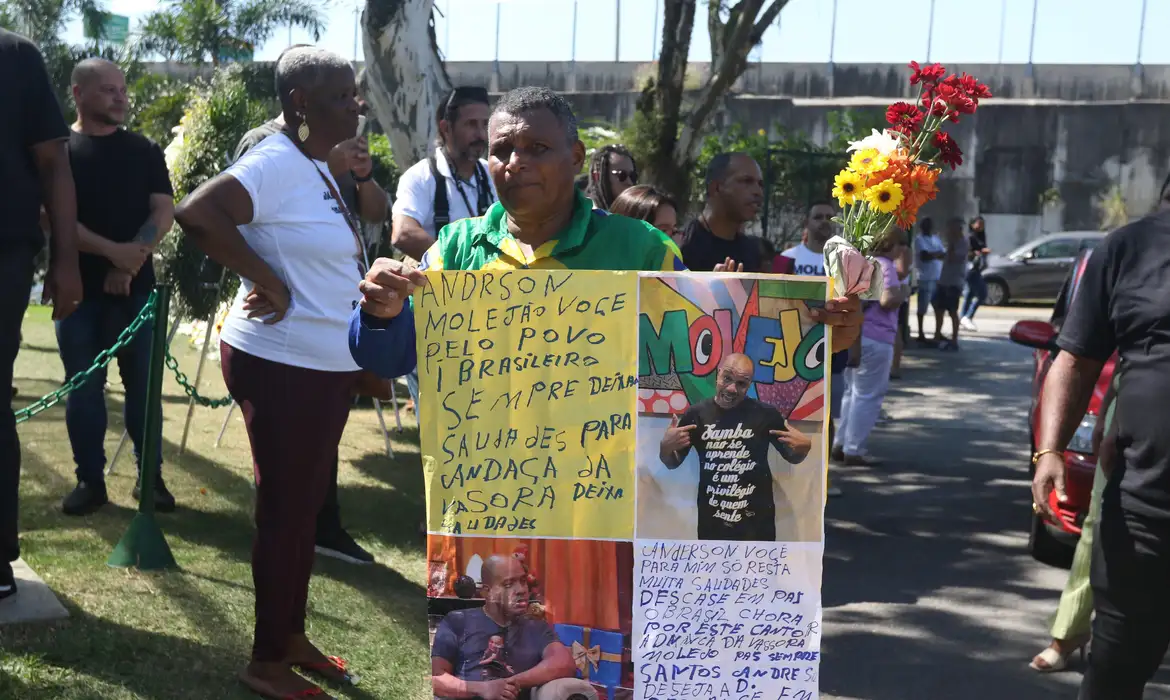 ANDRSON
MOLEJÃO VOCE
PELO POVO
I BRASILEIRO
SEMPRE DEIXAR
SAUDADES PARA
ANDAÇA DA
VASORA DEIXA
SAUDADES
MOLEJO
Samba
não se
aprende
no colégio
é um
privilégio
de quem
sente
ANDERSON VOCÊ
PARA MIM SÓ RESTA
MUITA SAUDADES
DESCASE EM PAS
O BRASIL CHORA
POR ESTE CANTOR
DA VASSORA
MOLEJO PAS SEMPRE
SANTOS ANDRE SU
DESEJA A D.
EM